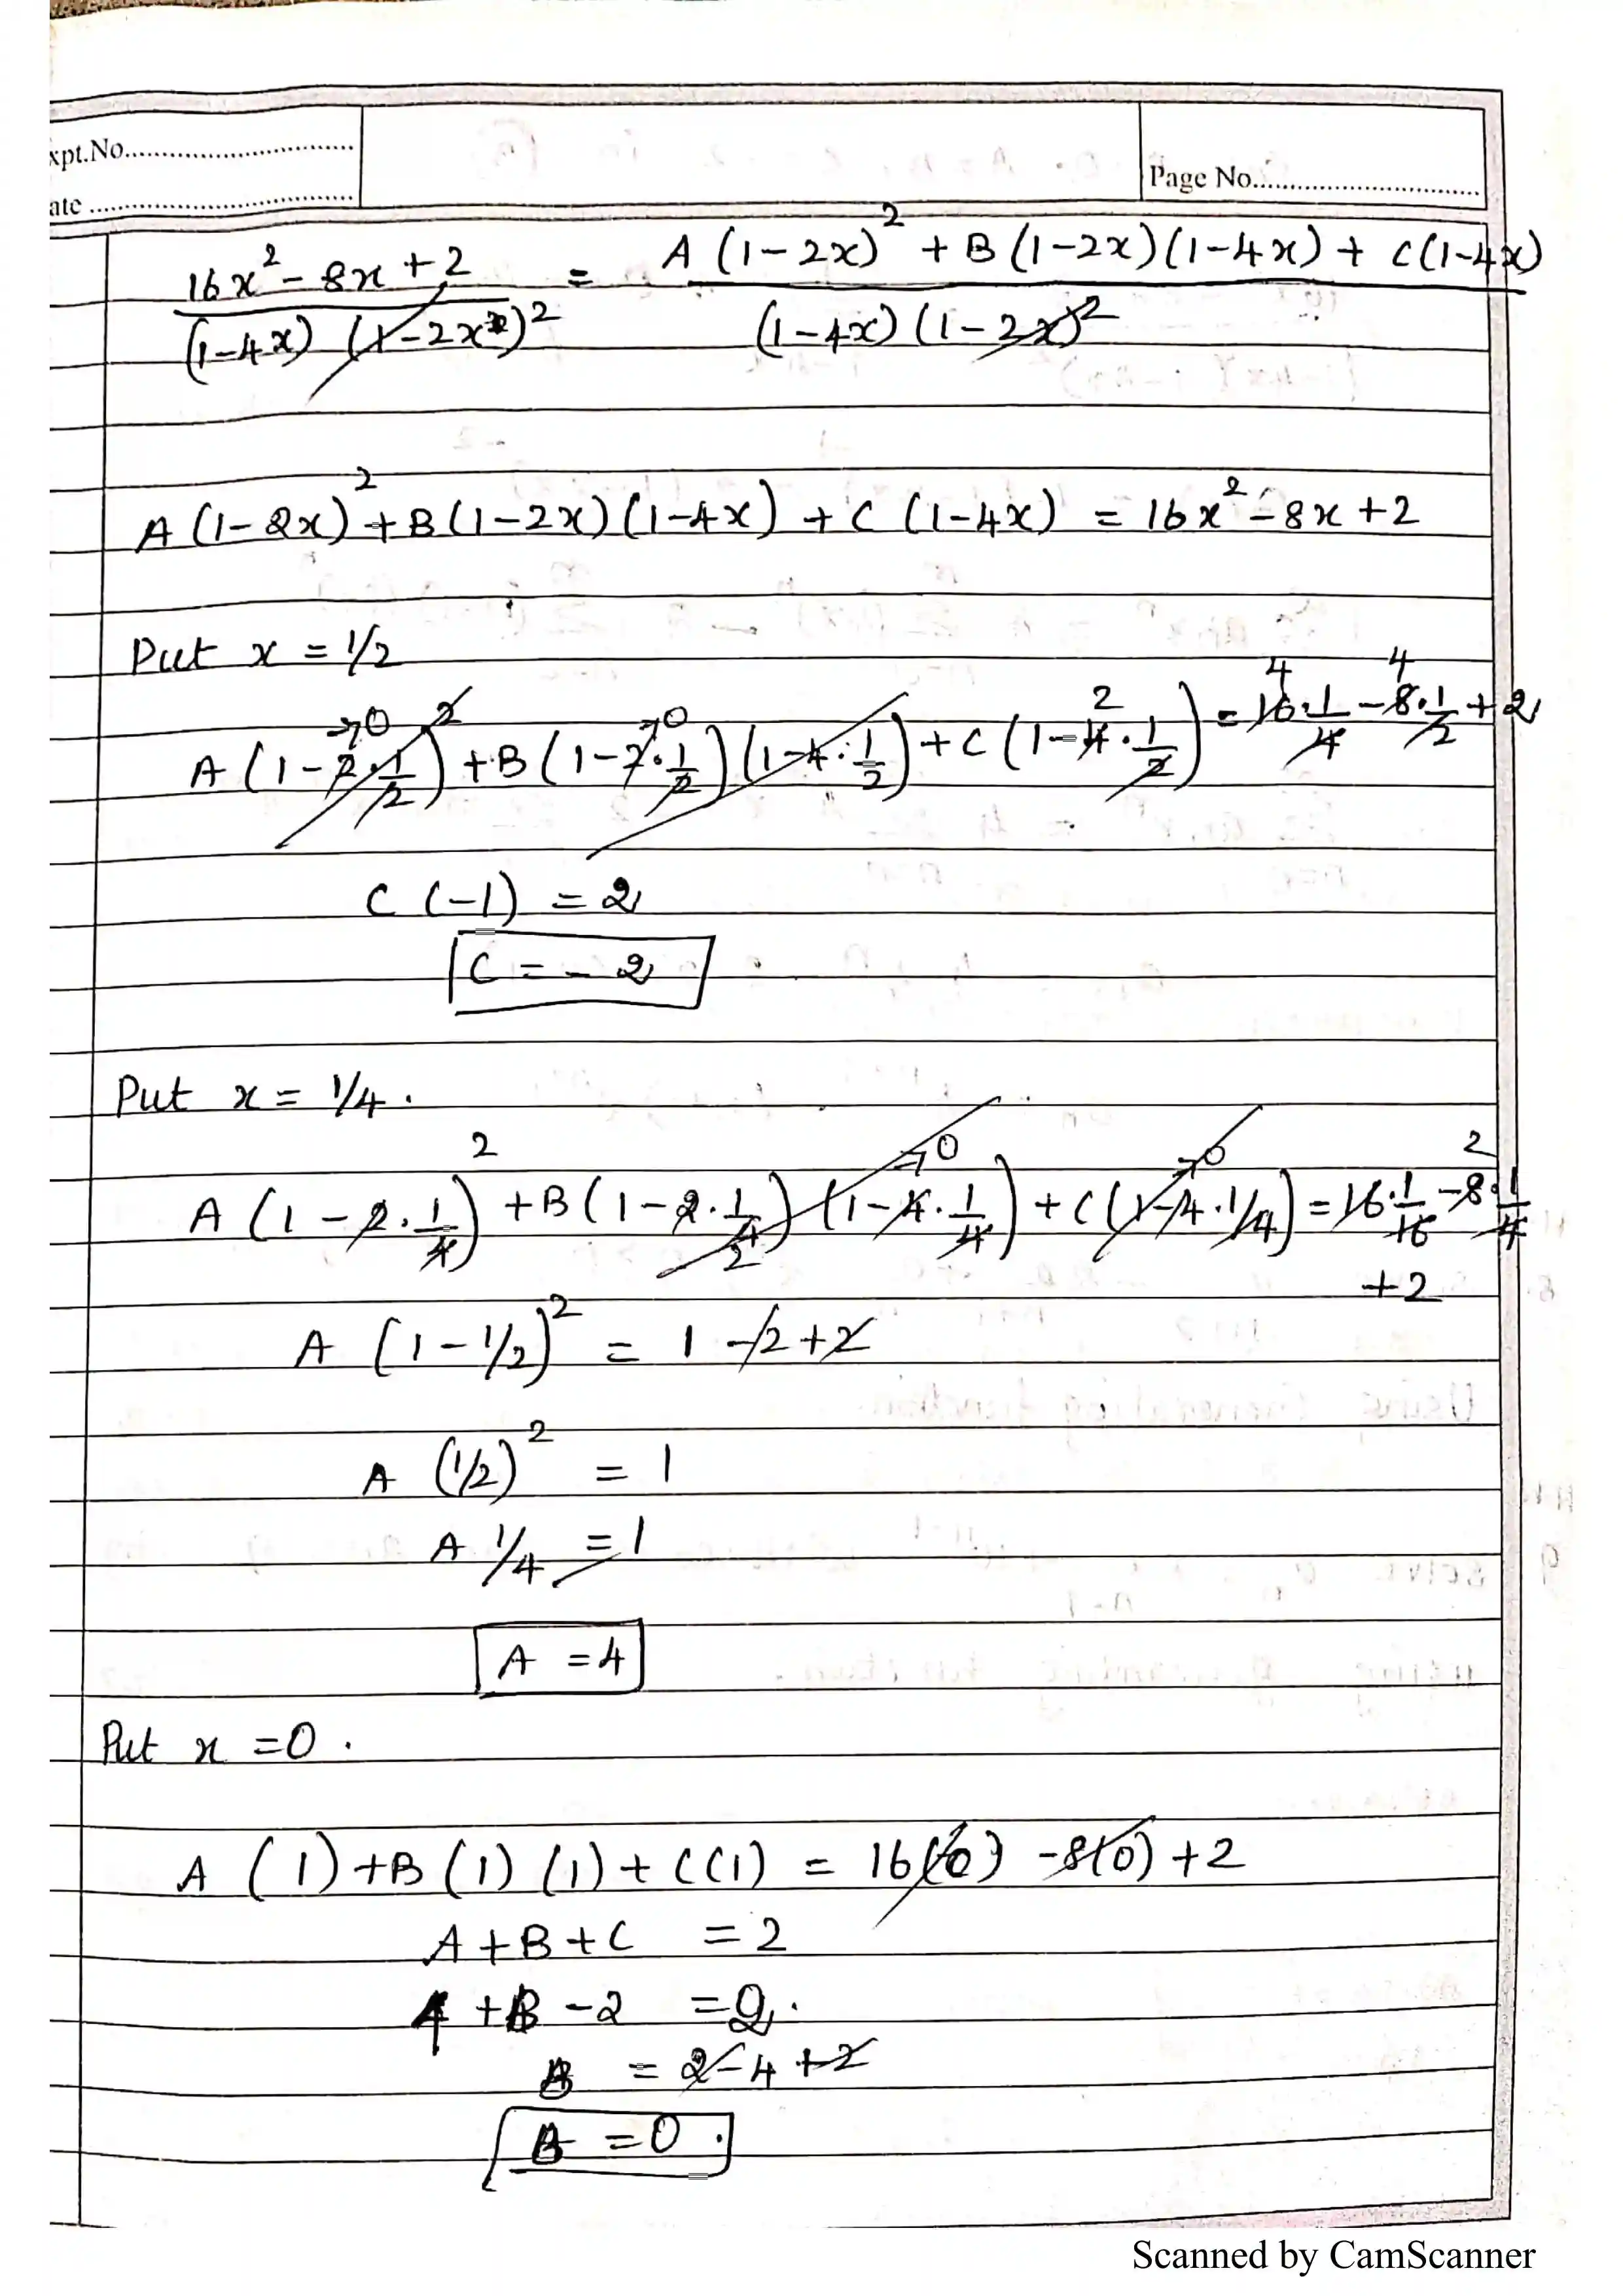 xpt.No..............................
Page No..............................
ate ..............................
16x² - 8x + 2 / (1-4x) (1-2x)² = A (1-2x)² + B (1-2x)(1-4x) + C(1-4x) / (1-4x) (1-2x)²
A (1-2x)² + B(1-2x)(1-4x) + C (1-4x) = 16x² - 8x + 2
Put x = 1/2
A (1-2·1/2)² + B (1-2·1/2)(1-4·1/2) + C (1-4·1/2) = 16·1/4 - 8·1/2 + 2
C (-1) = 2
C = - 2
Put x = 1/4 .
A (1 - 2·1/4)² + B (1 - 2·1/4) (1-4·1/4) + C (1-4·1/4) = 16·1/16 - 8·1/4
+2
A (1 - 1/2)² = 1 - 2 + 2
A (1/2)² = 1
A 1/4 = 1
A = 4
Put x = 0 .
A (1) + B (1) (1) + C(1) = 16(0) - 8(0) + 2
A + B + C = 2
4 + B - 2 = 2 .
B = 2 - 4 + 2
B = 0 .
Scanned by CamScanner